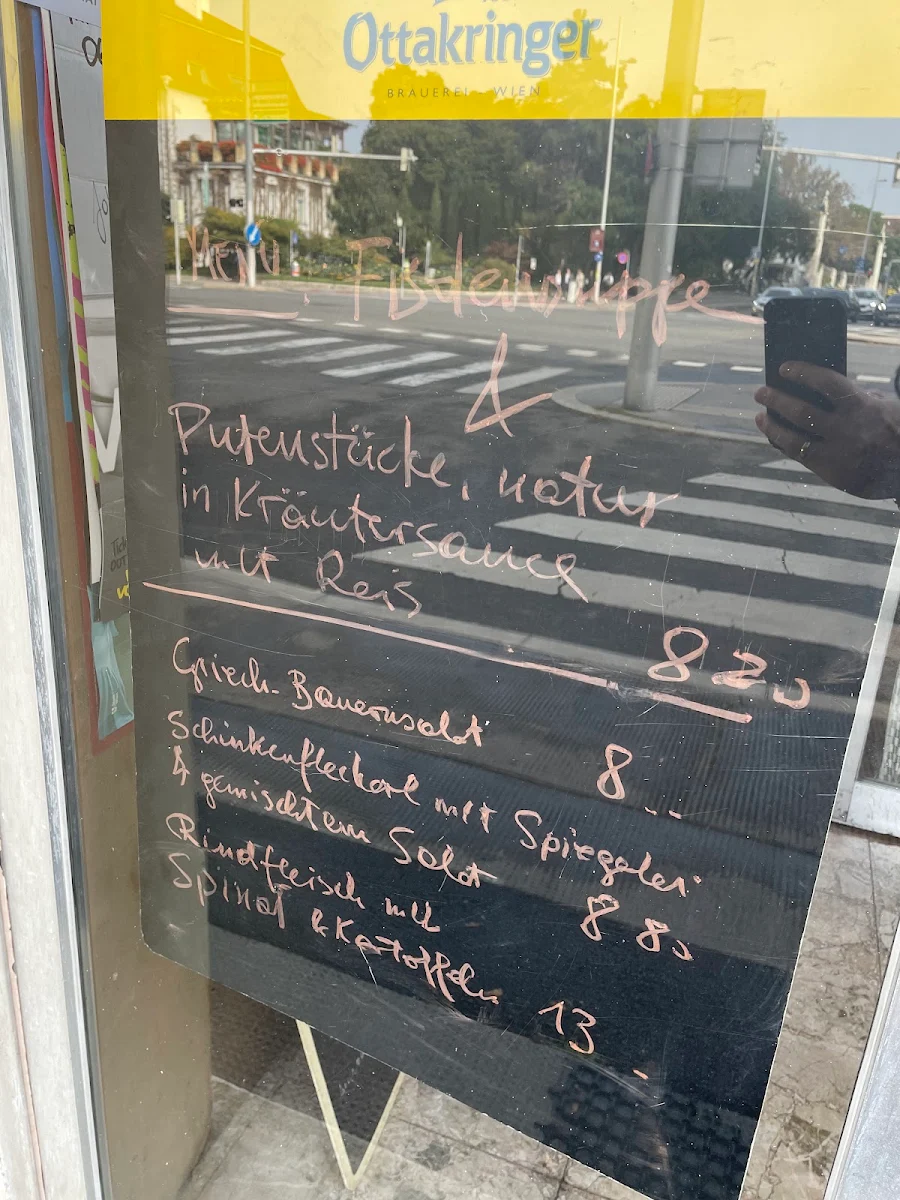 Ottakringer
BRAUEREI WIEN
Menü
&
Putenstücke, natur
in Kräutersauce
mit Reis
8 20
Griech. Bauernsalat
8 --
Schinkenfleckerl mit Spiegelei
& gemischtem Salat
8.80
Rindfleisch mit
Spinat & Kartoffeln
13 -